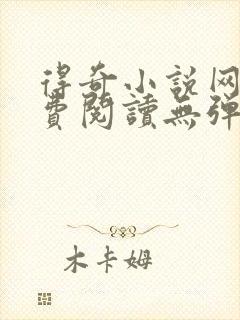 得奇小说网
费阅讀無弹
木卡姆